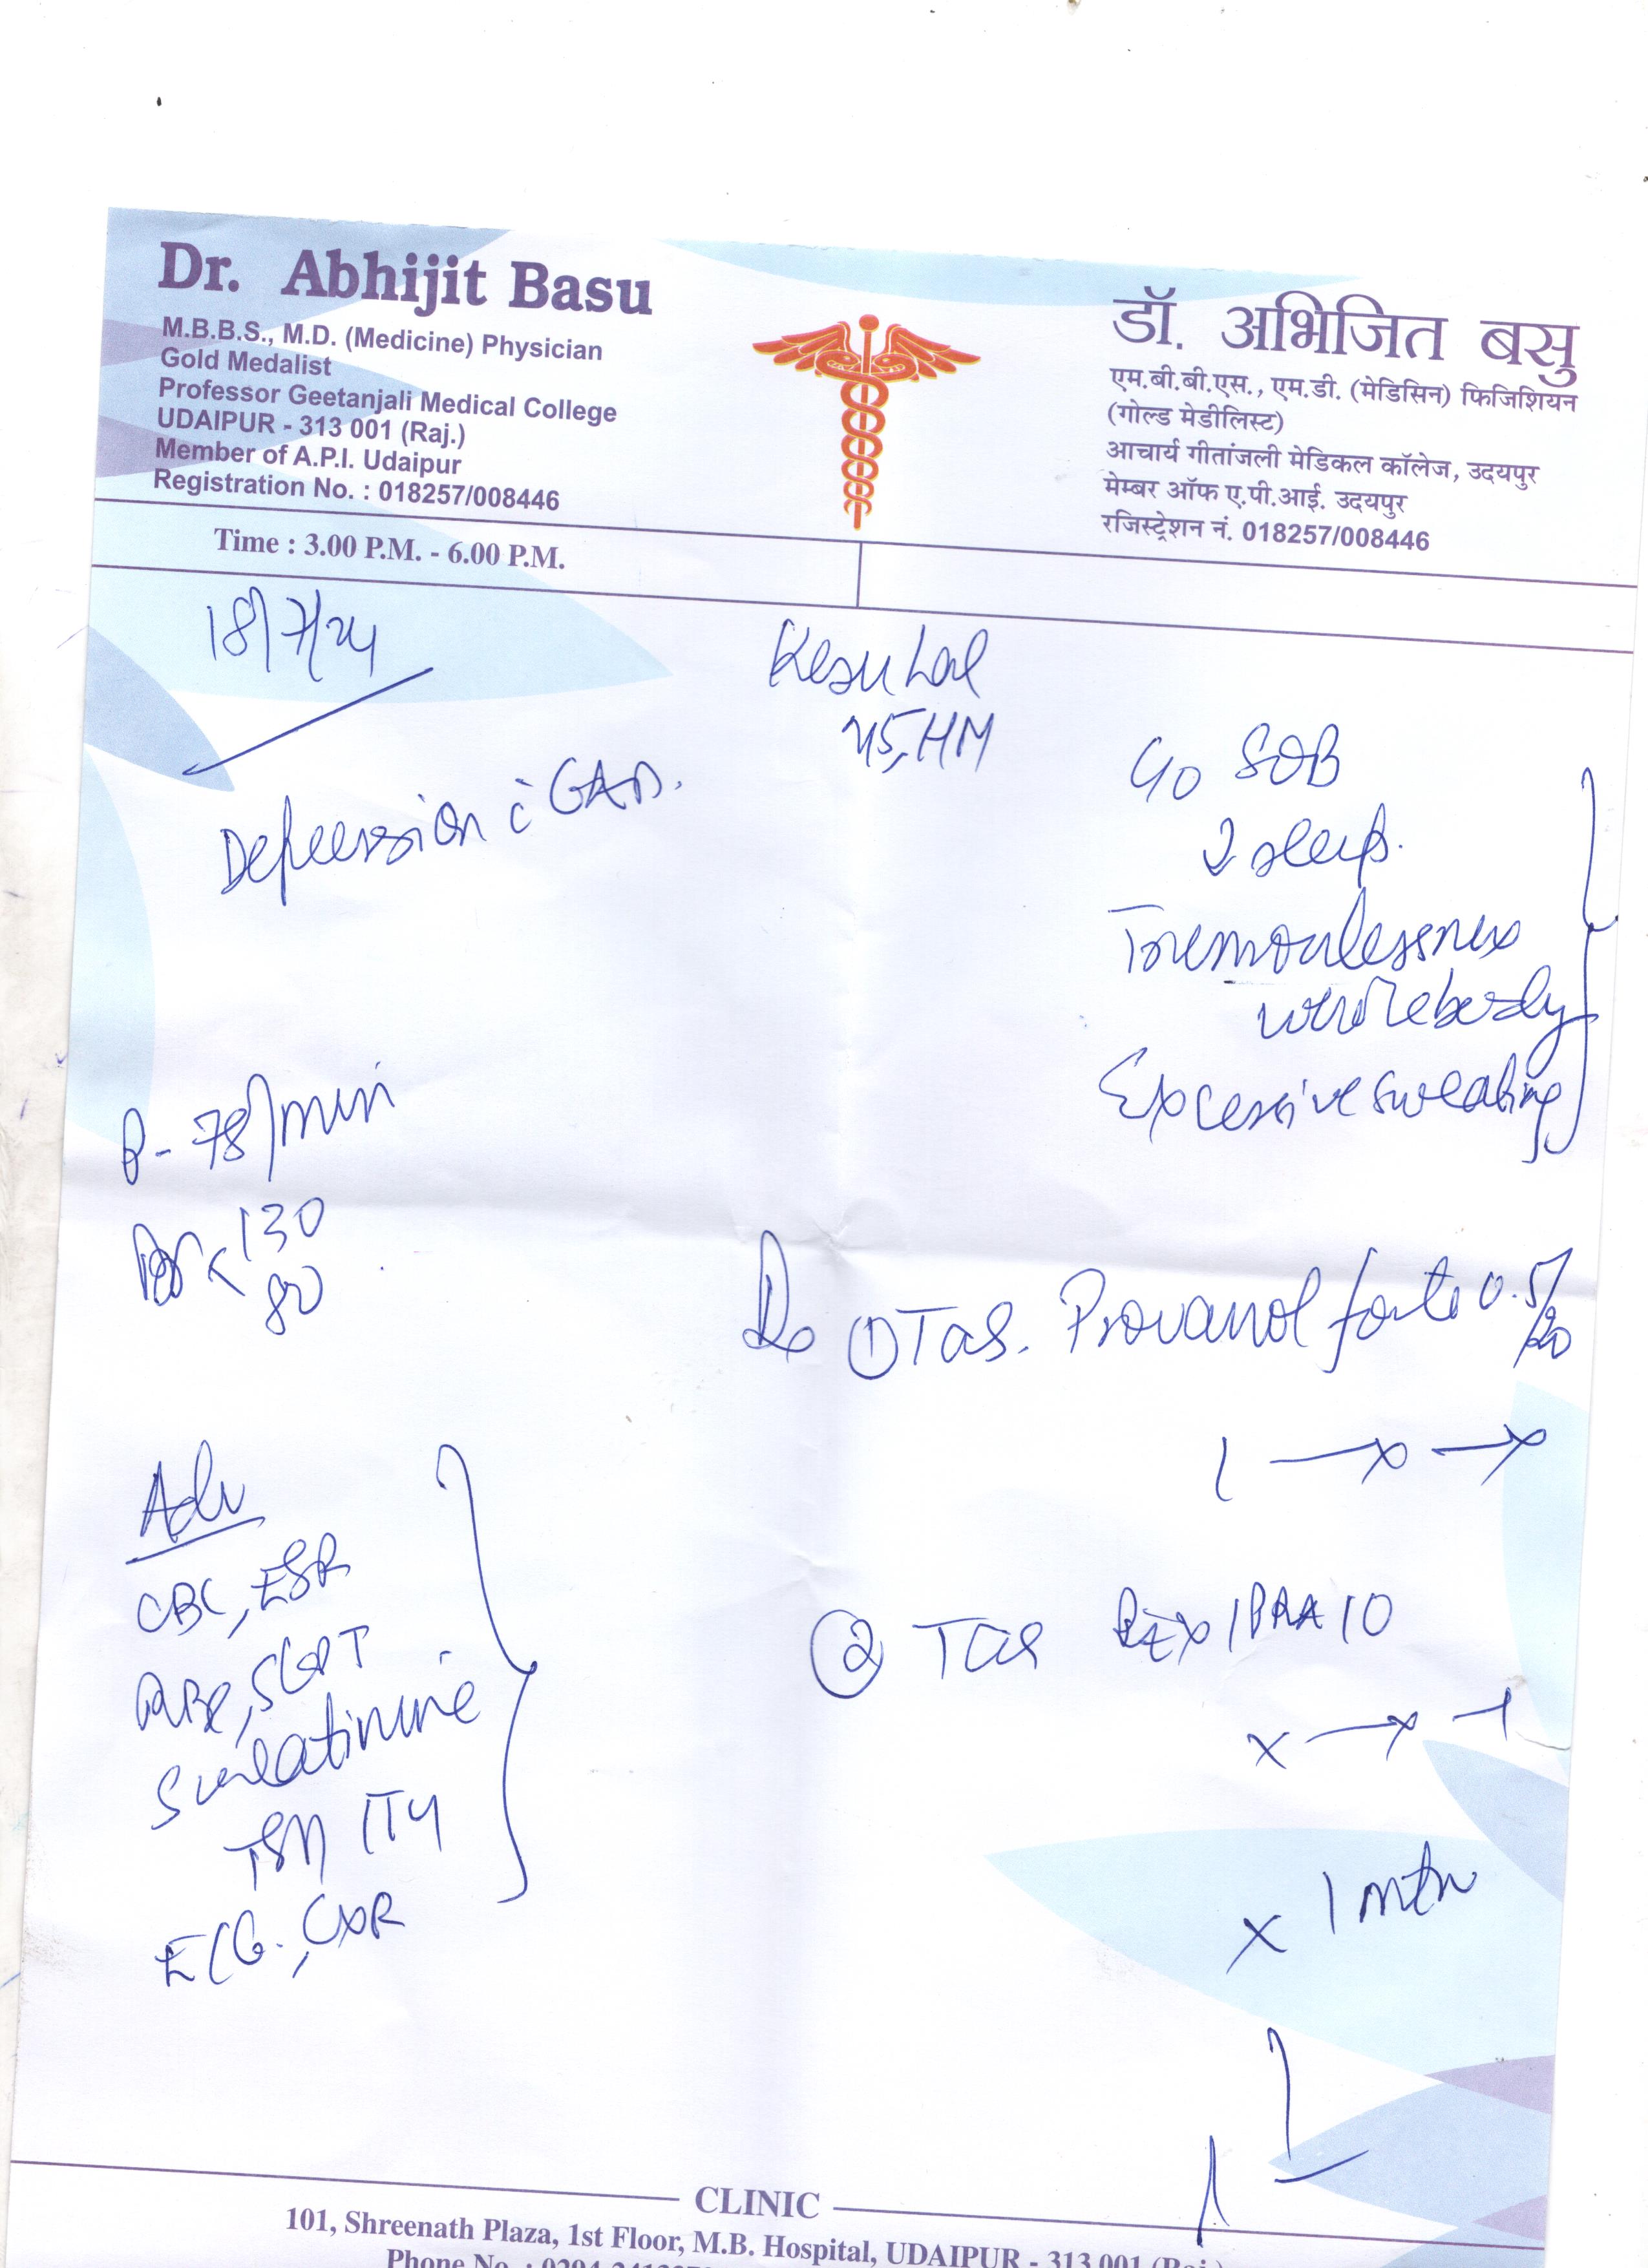 Dr. Abhijit Basu
M.B.B.S., M.D. (Medicine) Physician
Gold Medalist
Professor Geetanjali Medical College
UDAIPUR - 313 001 (Raj.)
Member of A.P.I. Udaipur
Registration No. : 018257/008446
डॉ. अभिजित बसु
एम.बी.बी.एस., एम.डी. (मेडिसिन) फिजिशियन
(गोल्ड मेडीलिस्ट)
आचार्य गीतांजली मेडिकल कॉलेज, उदयपुर
मेम्बर ऑफ ए.पी.आई. उदयपुर
रजिस्ट्रेशन नं. 018257/008446
Time : 3.00 P.M. - 6.00 P.M.
18/7/24
Kesu Lal
45, HM
Depression c̄ GAD.
C/o SOB
sleep.
Tremorlessness
whole body
Excessive sweating
P- 78/min
BP < 130
80
Rx ① Tab. Provanol forte 0.5/20
1 → x → x
Adv
CBC, ESR
RBS, SGPT
S creatinine
TSH / T4
ECG., CXR
② Tab 10
x → x → 1
x 1 mth
CLINIC
101, Shreenath Plaza, 1st Floor, M.B. Hospital, UDAIPUR - 313 001 (Raj.)
Phone No. : 0294